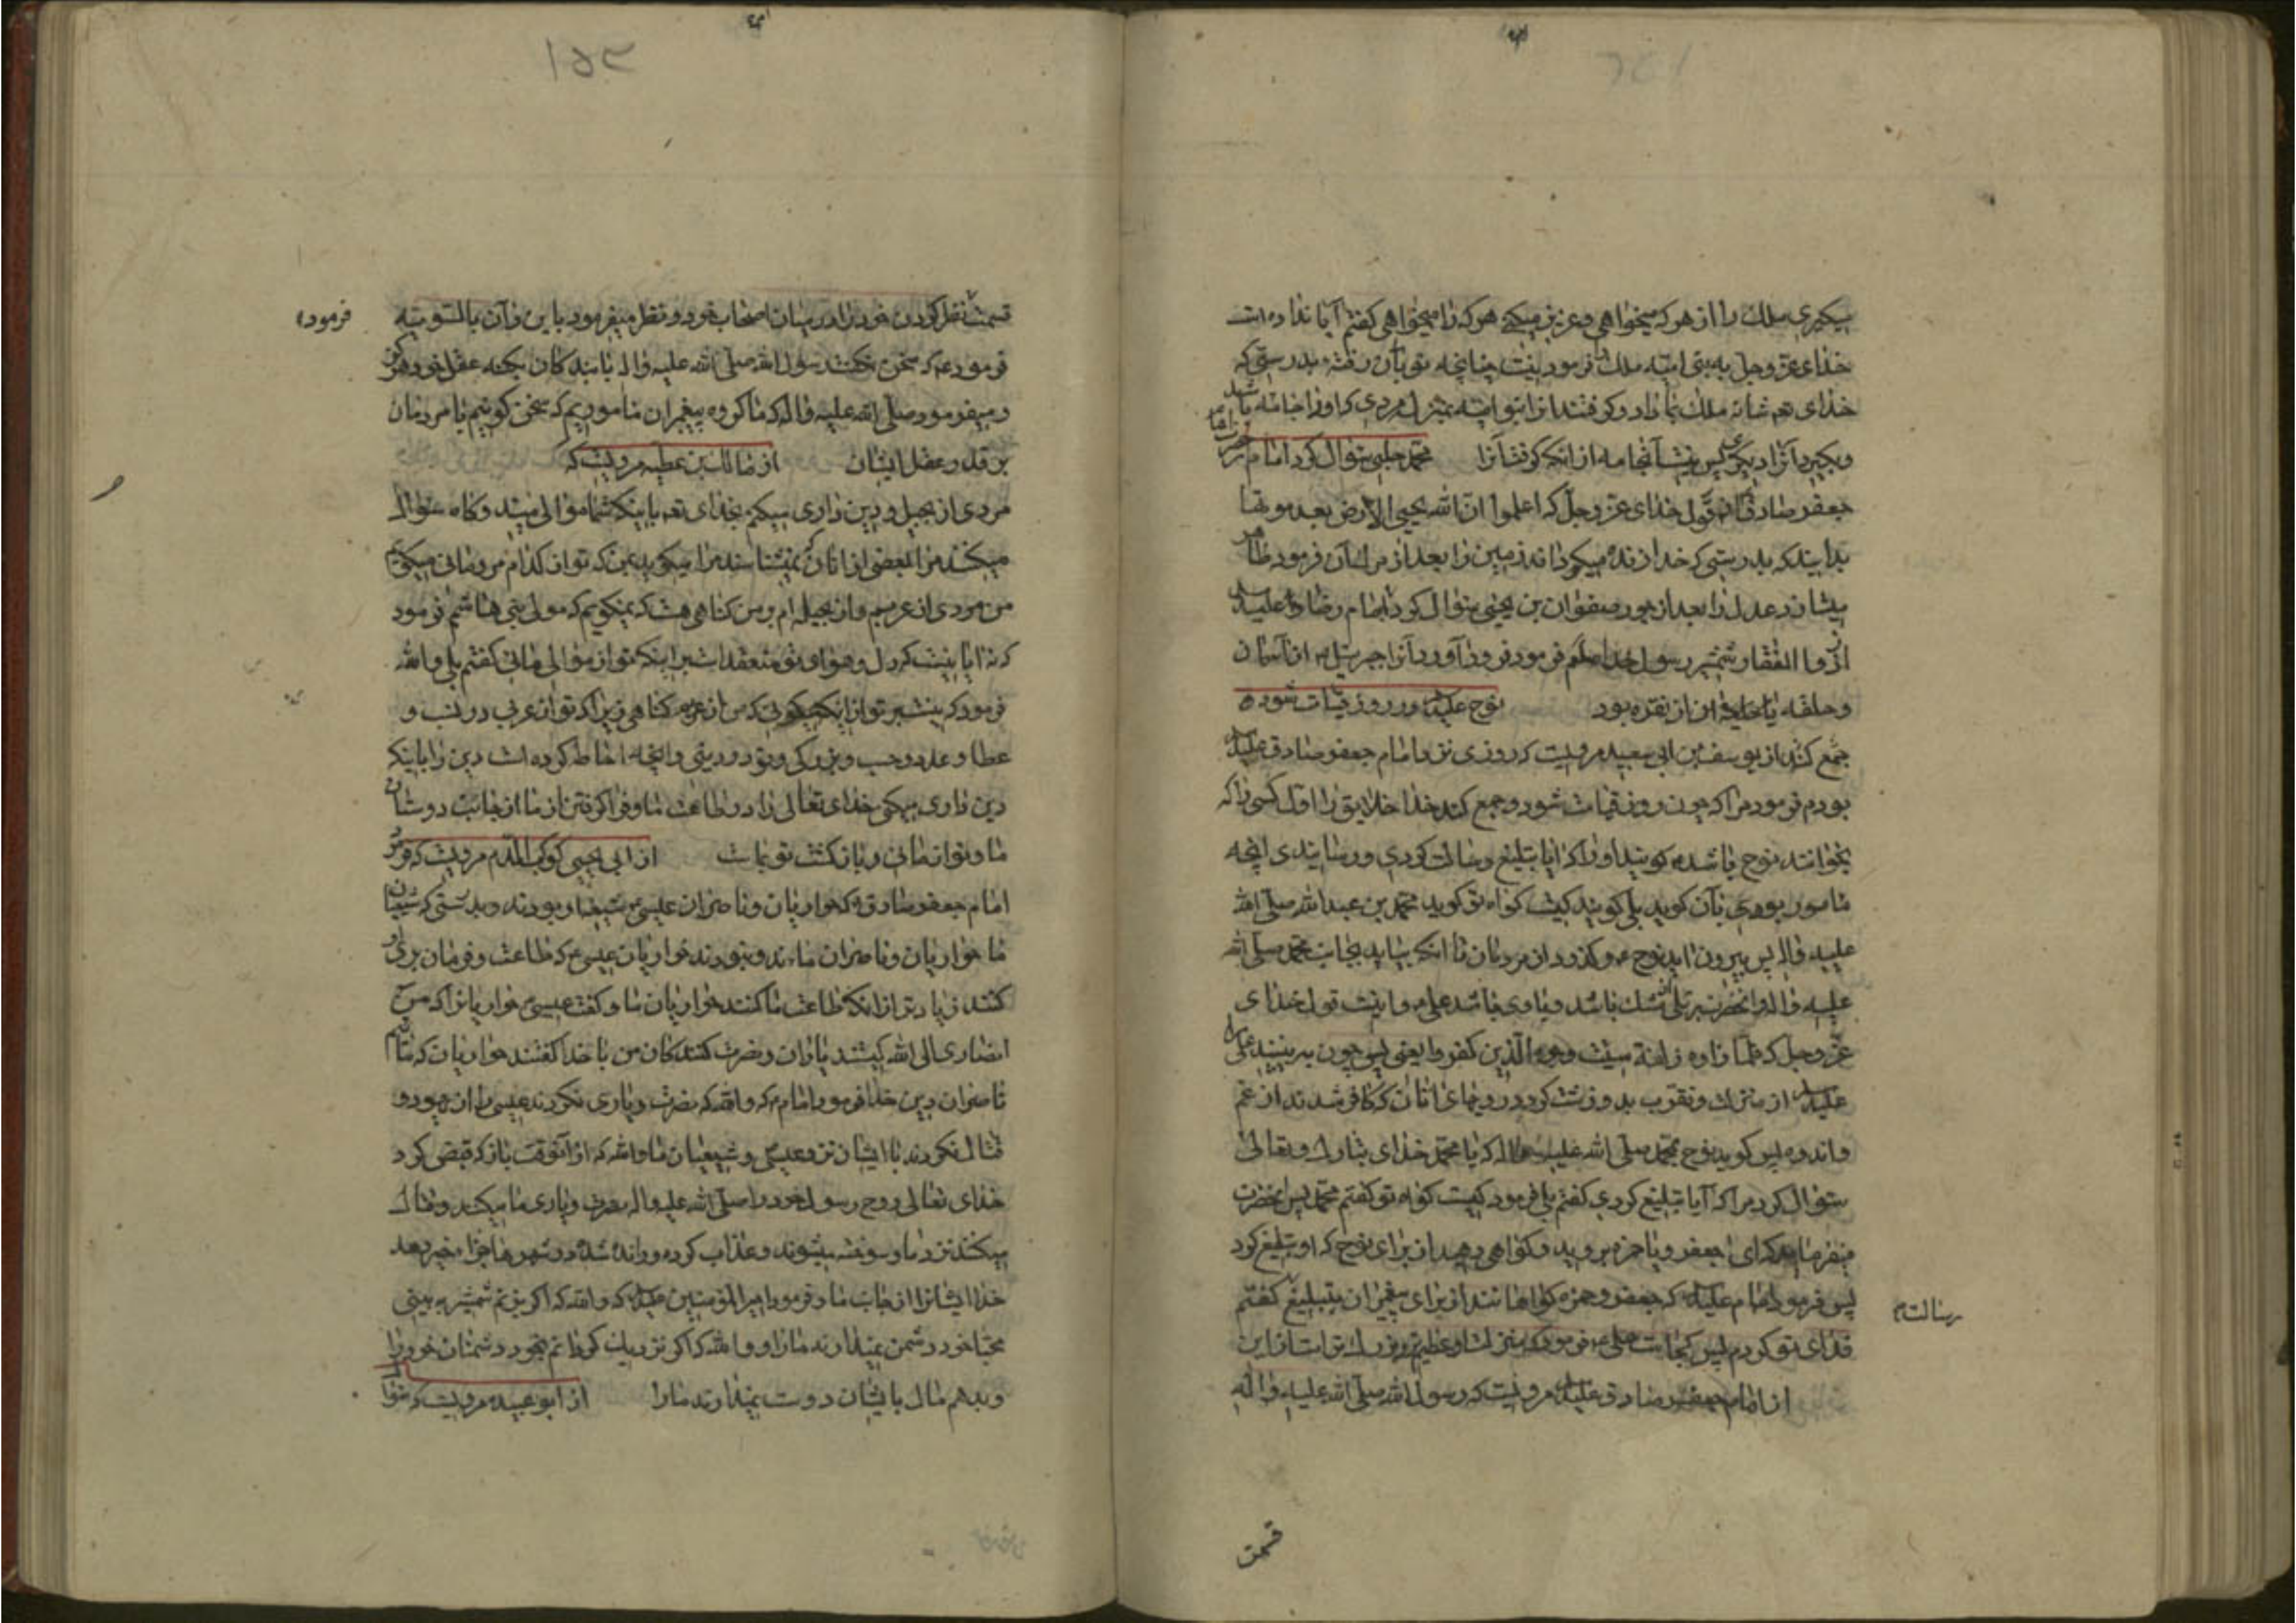 میکیری ملک را از هر که میخواهی و عزیز میکنی هر که را میخواهی کفتم آیا نداده است
خدای عز و جل به بنی امیه ملک را فرمود نیست چنانچه تو بآن رفتهٔ بدرستی که
خدای تعه شانه ملک بما داد و کرفتند انرا بنو امیه بمنزله مردی که او را جامه باشد
و بکیرد آنرا دیکری پس نیست آنجامه از انکه کرفت آنرا محمد حلبی سؤال کرد امام
جعفر صادق از قول خدای عز و جل که اعلموا ان الله یحیی الارض بعد موتها
بدانید که بدرستی که خدا زنده میکرداند زمین را بعد از مرک آن فرمود ظاهر
میشازد عدل را بعد از جور صفوان بن یحیی سؤال کرد امام رضا علیه السلم
از ذو الفقار شمشیر رسول خدا صلعم فرمود فرود آورد آنرا جبرئیل از آسمان
و حلقه یا حلقهٔ از نقره بود نوح علیه السلم در روز قیامت شوده
جمع کند از یوسف بن ابی سعید مرویست که روزی نزد امام جعفر صادق علیه السلم
بودم فرمود مرا که چون روز قیامت شود و جمع کند خدا خلایق را اول کسی را که
بخوانند نوح باشد کویند او را که ایا تبلیغ رسالت کردی و رسانیدی انچه
مامور بودی بآن کوید بلی کویند کیست کواه تو کوید محمد بن عبد الله صلی الله
علیه و اله پس بیرون اید نوح ع و کذرد از مردمان تا انکه بیاید بجانب محمد صلی الله
علیه و اله و انحضرت بر تلی از مشک باشد و با وی باشد علی ع و اینست قول خدای
عز و جل که فلما راوه زلفة سیئت وجوه الذین کفروا یعنی پس چون به بینند علی
علیه السلم از منزلت و تقرب بد و زشت کردد رویهای انان که کافر شدند از غم
و اندوه پس کوید نوح بمحمد صلی الله علیه و اله که یا محمد خدای تبارک و تعالی
سؤال کرد مرا که آیا تبلیغ کردی کفتم بلی فرمود کیست کواه تو کفتم محمد پس انحضرت
میفرماید که ای جعفر و یا حمزه بروید و کواهی دهید از برای نوح که او تبلیغ کرد
پس فرمود امام علیه السلم که جعفر و حمزه کواهانند از برای پیغمبران بتبلیغ کفتم
رسالت
فدای تو کردم پس کجاست علی ع فرمود که منزلت او عظیم تر و بزرک تر است از این
از امام جعفر صادق علیه السلم مرویست که رسول الله صلی الله علیه و اله
قسمت
۱۵۳
قسمت نظر کردن خود را در میان اصحاب خود و نظر میفرمود باین و آن بالسویه
فرموده
فرمود ع که سخن نکفت رسول الله صلی الله علیه و اله با بندکان بکنه عقل خود هرکز
و میفرمود صلی الله علیه و اله که ما کروه پیغمبران ماموریم که سخن کوئیم با مردمان
بر قدر عقل ایشان از مالک بن عطیه مرویست که
مردی از بجیل و دین داری میکنم بخدای تعه باینکه شما موالی منید و کاه سؤال
میکنند مرا بعضی از انان که نمیشناسند مرا میکوید بمن که تو از کدام مردمانی میکویم
من مردی از عربم و از بجیله ام بر من کناهی هست که نمیکویم که مولی بنی هاشم فرمود
که نه ایا نیست که دل و هوای تو منعقد است بر اینکه تو از موالی مائی کفتم بلی و الله
فرمود که نیست بر تو از اینکه میکوئی که من از عربم کناهی زیرا که تو از عربی در نسب و
عطا و عدد و حسب و بزرکی و تو در دینی و انچه احاطه کرده است دین را باینکه
دین داری میکنی خدای تعالی را در طاعت ما و فرا کرفتن از ما از جانب دوستان
ما و تو از مائی و بازکشت تو بماست از ابی یحیی کوکب الدم مرویست که فرمود
امام جعفر صادق ع که حواریان و ناصران عیسی ع شیعه او بودند و بدرستی که شیعیان
ما حواریان و ناصران مااند و نبودند حواریان عیسی ع که طاعت و فرمان بری او
کنند زیادتر از انکه طاعت ما کنند حواریان ما و کفت عیسی ع حواریانرا که من
انصاری الی الله کیستند یاران و نصرت کنندکان من با خدا کفتند حواریان که مائیم
ناصران دین خدا فرمود امام ع که والله که نصرت و یاری نکردند عیسی را از یهود و
قتال نکردند با ایشان نزد عیسی و شیعیان ما والله که از آنوقت باز که قبض کرد
خدای تعالی روح رسول خود را صلی الله علیه و اله نصرت و یاری ما میکنند و قتال
میکنند نزد ما و سوخته میشوند و عذاب کرده و رانده شده در شهرها جزاء خیر دهد
خدا ایشانرا از جانب ما و فرمود امیر المؤمنین علیه السلم که والله که اکر بزنم شمشیر به بینی
محبا خود دشمن نمیدارند ما را و والله که اکر نزدیک کردانم بخود دشمنان خود را
و بدهم مال بایشان دوست نمیدارند ما را از ابو عبیده مرویست که سؤال